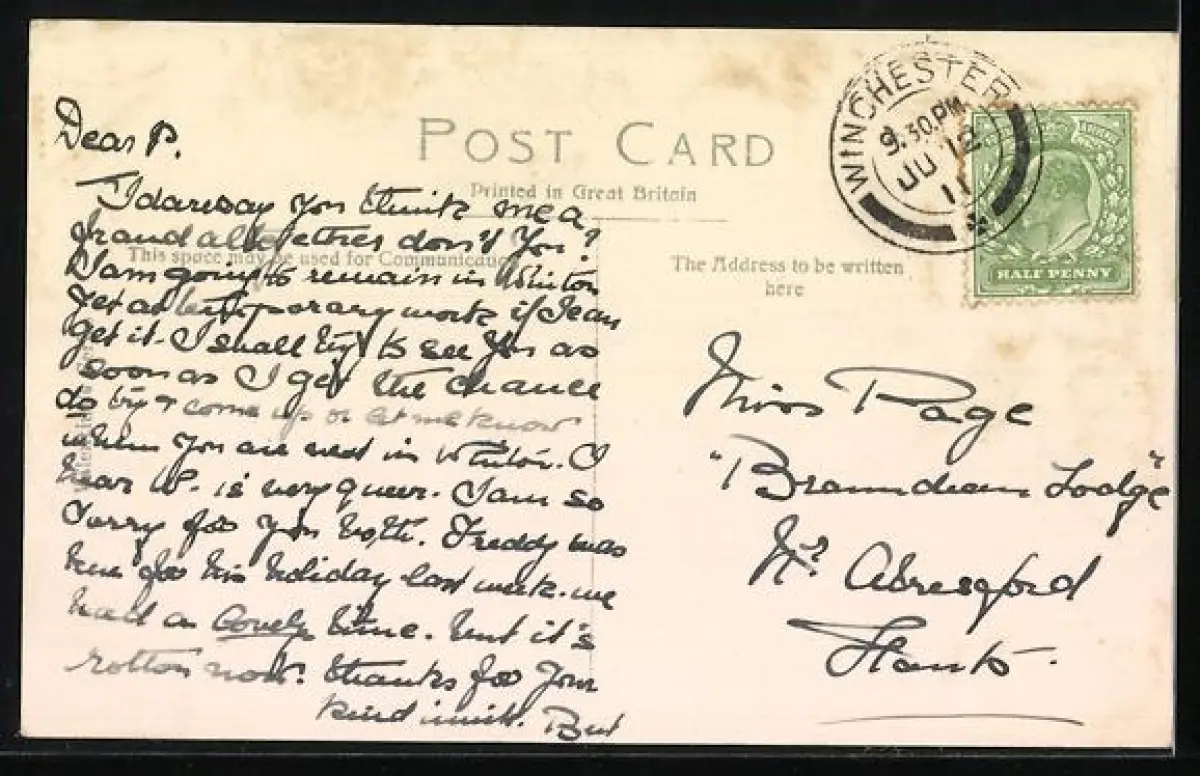 POST CARD
Printed in Great Britain
This space may be used for Communication
The Address to be written
here
WINCHESTER
9.30.PM
JU 12
11
HALF PENNY
Dear P.
I daresay you think me a
fraud altogether don't you?
I am going to remain in Winton
get a temporary work if I can
get it. I shall try to see you as
soon as I get the chance
do try & come up or let me know
when you are next in Winton. I
hear W. is very queer. I am so
sorry for you both. Freddy was
here for his holiday last week. we
had a lovely time. but it's
rotten now. thanks for your
kind invit. But
Miss Page
"Bramdean Lodge"
Nr Alresford
Hants.